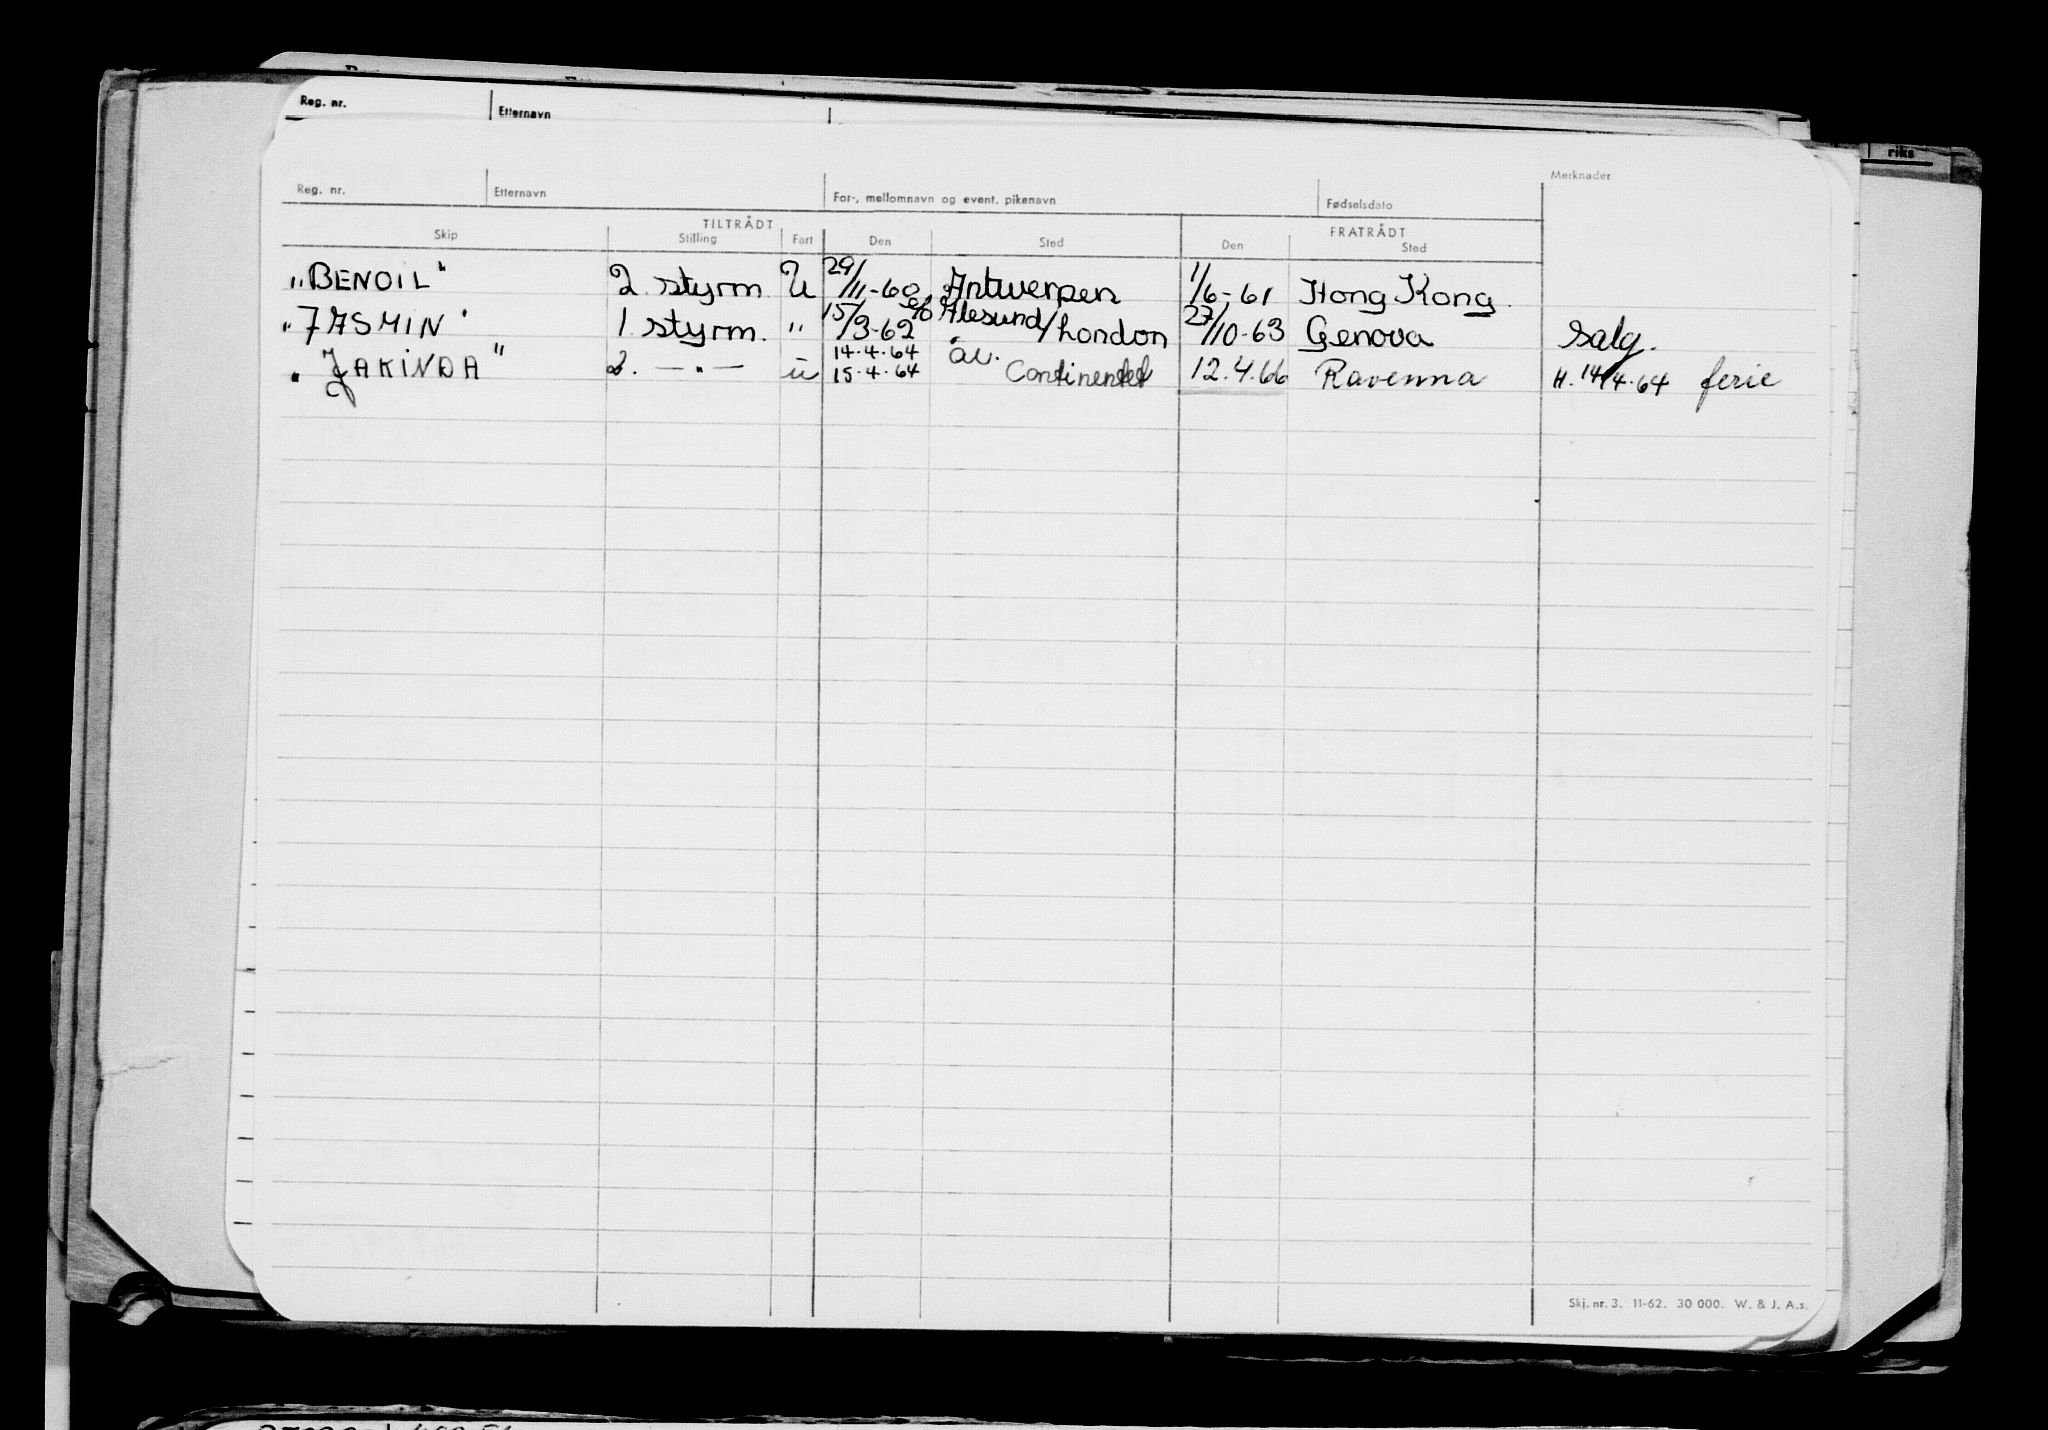 Reg. nr. Etternavn
riks
Merknader
Reg. nr. Etternavn For-, mellomnavn og event. pikenavn Fødselsdato
TILTRÅDT FRATRÅDT
Skip Stilling Fart Den Sted Den Sted
"BENOIL" 2. styrm. U 29/11-60 Antwerpen 1/6-61 Hong Kong.
"JASMIN" 1. styrm. " 15/3-62 Ålesund/London 27/10-63 Genova Salg.
"JAKINDA" 2. —"— u 14.4.64 av.
15.4.64 Continentet 12.4.66 Ravenna H. 14/4.64 ferie
Skj. nr. 3. 11-62. 30 000. W. & J. A.s.